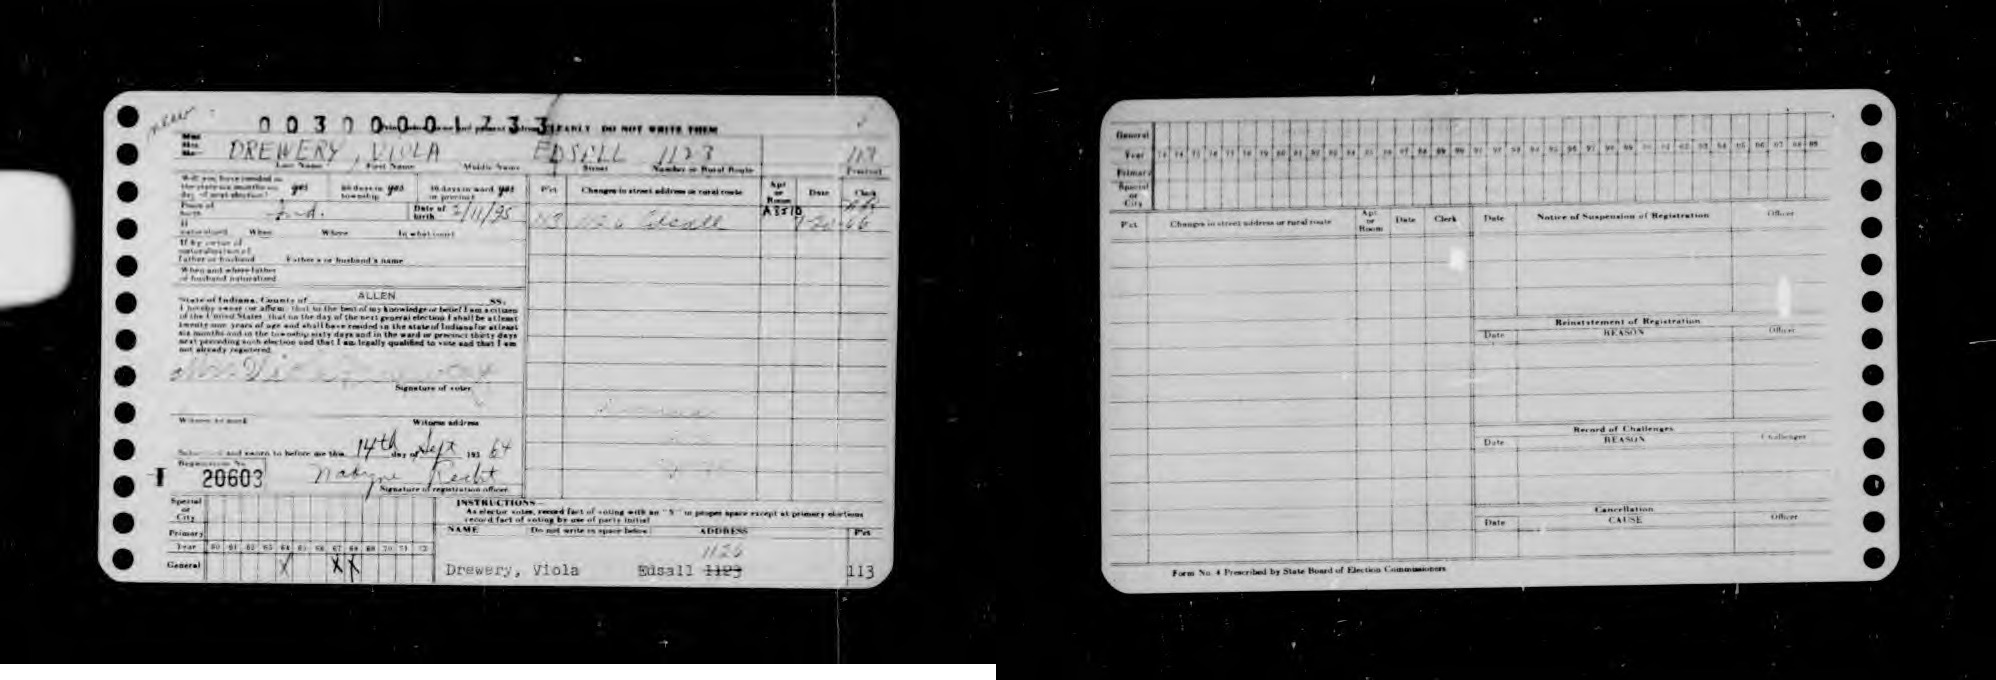 new
00300001733 EARLY DO NOT WRITE THEM
DREWERY, VIOLA EDSELL 1123 113
Last Name First Name Middle Name Street Number or Rural Route Precinct
Will you have resided in the state six months on day of next election? yes 60 days in township yes 30 days in ward or precinct yes
P'ct Changes in street address or rural route Apt or Room Date Clerk
Place of birth Ind. Date of birth 2/11/95
113 1126 Edsall A3510 66
If naturalized When Where In what court
If by virtue of naturalization of Father or husband Father's or husband's name
When and where father or husband naturalized
State of Indiana, County of ALLEN SS:
I hereby swear (or affirm) that to the best of my knowledge or belief I am a citizen
of the United States, that on the day of the next general election I shall be at least
twenty-one years of age and shall have resided in the state of Indiana for at least
six months and in the township sixty days and in the ward or precinct thirty days
next preceding such election and that I am legally qualified to vote and that I am
not already registered.
Mrs. Viola
Signature of voter
Witness to mark Witness address
Subscribed and sworn to before me this 14th day of Sept 64
Registration No.
I 20603
Signature of registration officer
Special or City
Primary
Year 60 61 62 63 64 65 66 67 68 69 70 71 72
General X X X
INSTRUCTIONS
As elector votes, record fact of voting with an "X" in proper space except at primary elections
record fact of voting by use of party initial
NAME Do not write in space below ADDRESS P'ct
1126
Drewery, Viola Edsall 1123 113
General
Year
Primary
Special or City
P'ct Changes in street address or rural route Apt or Room Date Clerk
Date Notice of Suspension of Registration Officer
Reinstatement of Registration
Date REASON Officer
Record of Challenges
Date REASON Challenger
Cancellation
Date CAUSE Officer
Form No. 4 Prescribed by State Board of Election Commissioners